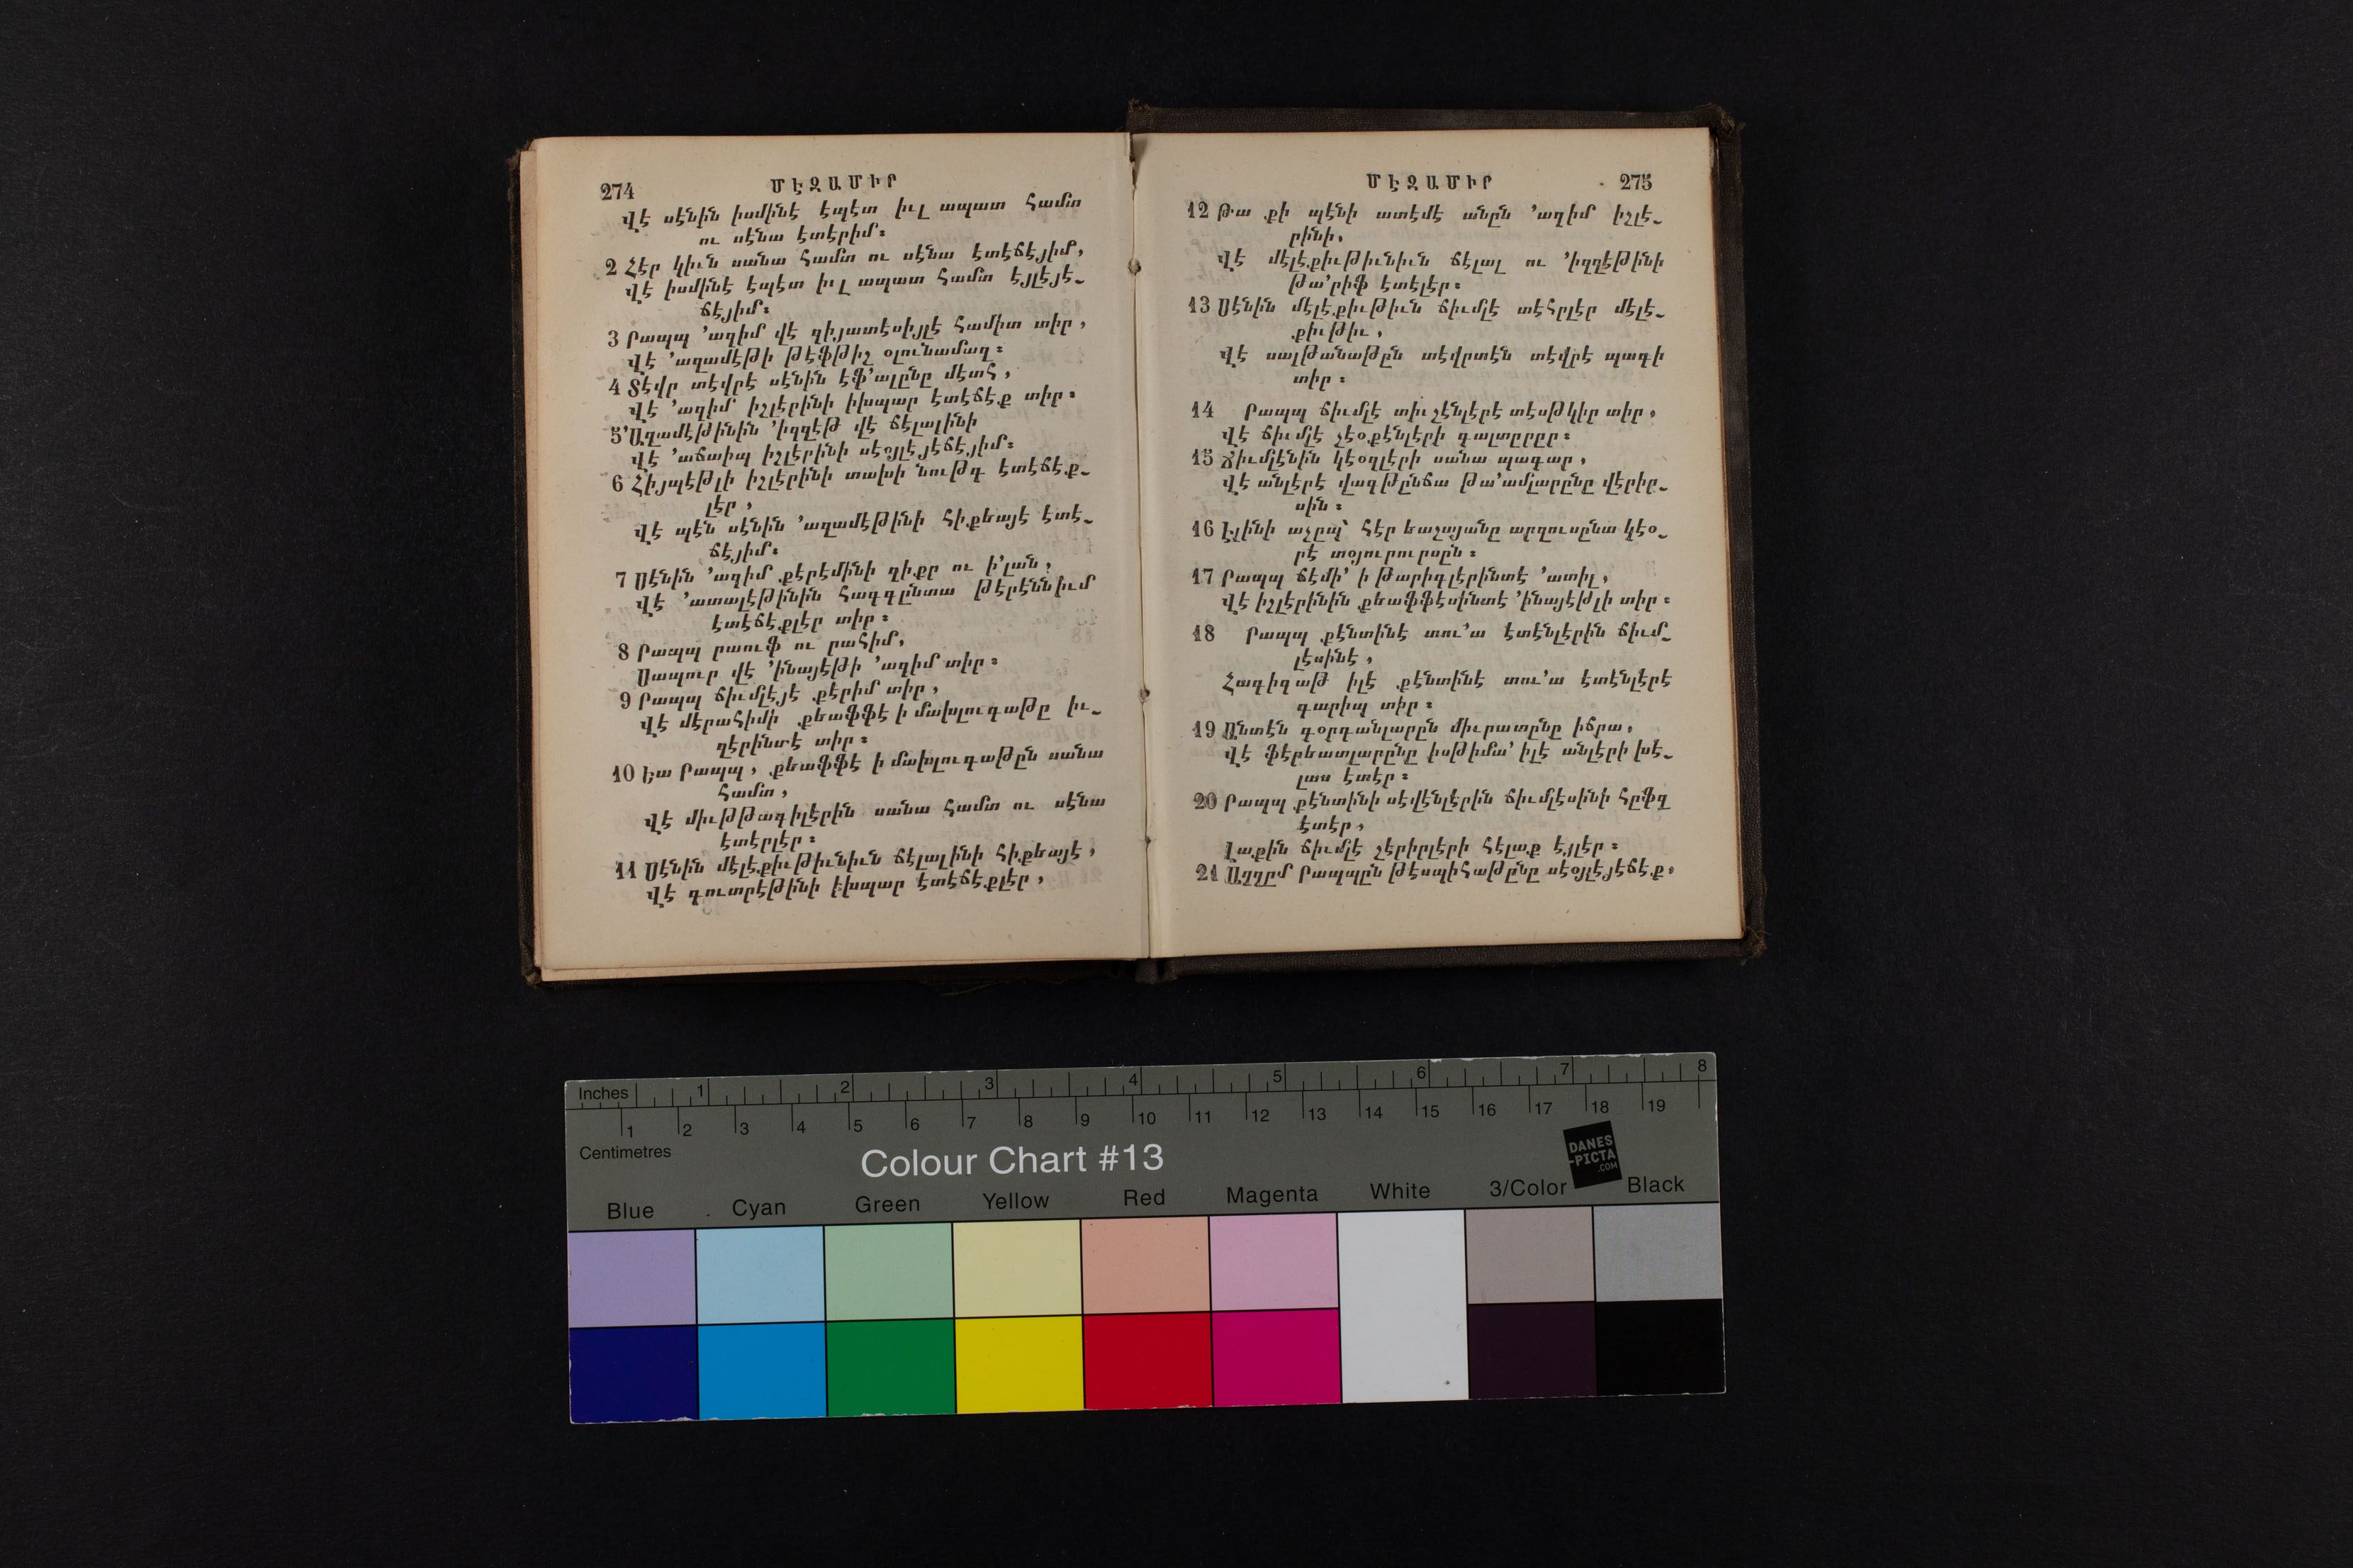 274 ՄԷԶԱՄԻՐ
Վէ սէնին իսմինէ էպէտ իւլ ապատ համտ
ու սէնա էտէրիմ։
2 Հէր կիւն սանա համտ ու սէնա էտէճէյիմ,
Վէ իսմինէ էպէտ իւլ ապատ համտ էյլէյէ֊
ճէյիմ։
3 Րապպ ՚ազիմ վէ զիյատէսիյլէ համիտ տիր,
Վէ ՚ազամէթի թէֆթիշ օլունամազ։
4 Տէվր տէվրէ սէնին էֆ՚ալընը մէտհ,
Վէ ՚ազիմ իշլէրինի իխպար էտէճէք տիր։
5 ՚Ազամէթինին ՚իզզէթ վէ ճէլալինի
Վէ ՚աճաիպ իշլէրինի սէօյլէյէճէյիմ։
6 Հիյպէթլի իշլէրինի տախի նութգ էտէճէք֊
լէր,
Վէ պէն սէնին ՚ազամէթինի հիքեայէ էտէ֊
ճէյիմ։
7 Սէնին ՚ազիմ քէրէմինի զիքր ու ի՚լան,
Վէ ՚ատալէթինին հագգընտա թէրէննիւմ
էտէճէքլէր տիր։
8 Րապպ րաուֆ ու րահիմ,
Սապուր վէ ՚ինայէթի ՚ազիմ տիր։
9 Րապպ ճիւմլէյէ քէրիմ տիր,
Վէ մէրահիմի քեաֆֆէ ի մախլուգաթը իւ֊
զէրինտէ տիր։
10 Եա Րապպ, քեաֆֆէ ի մախլուգաթըն սանա
համտ,
Վէ միւթթագիլէրին սանա համտ ու սէնա
էտէրլէր։
11 Սէնին մէլէքիւթիւնիւն ճէլալինի հիքեայէ,
Վէ գուտրէթինի իխպար էտէճէքլէր,
ՄԷԶԱՄԻՐ 275
12 Թա քի պէնի ատէմէ անըն ՚ազիմ իշլէ֊
րինի,
Վէ մէլէքիւթիւնիւն ճէլալ ու ՚իզզէթինի
թա՚րիֆ էտէլէր։
13 Սէնին մէլէքիւթիւն ճիւմլէ տէհրլէր մէլէ֊
քիւթիւ,
Վէ սալթանաթըն տէվրտէն տէվրէ պագի
տիր։
14 Րապպ ճիւմլէ տիւշէնլէրէ տէսթկիր տիր,
Վէ ճիւմլէ չէօքէնլէրի գալտըրըր։
15 Ճիւմլէնին կէօզլէրի սանա պագար,
Վէ անլէրէ վագթընճա թա՚ամլարընը վէրիր֊
սին։
16 Էլինի աչըպ՝ հէր եաշայանը արզուսընա կէօ֊
րէ տօյուրուրսըն։
17 Րապպ ճէմի՚ ի թարիգլէրինտէ ՚ատիլ,
Վէ իշլէրինին քեաֆֆէսինտէ ՚ինայէթլի տիր։
18 Րապպ քէնտինէ տու՚ա էտէնլէրին ճիւմ֊
լէսինէ,
Հագիգաթ իլէ քէնտինէ տու՚ա էտէնլէրէ
գարիպ տիր։
19 Անտէն գօրգանլարըն միւրատընը իճրա,
Վէ ֆէրեատլարընը իսթիմա՚ իլէ անլէրի խէ֊
լաս էտէր։
20 Րապպ քէնտինի սէվէնլէրին ճիւմլէսինի հըֆզ
էտէր,
Լաքին ճիւմլէ շէրիրլէրի հէլաք էյլէր։
21 Աղզըմ Րապպըն թէսպիհաթընը սէօյլէյէճէք,
Inches 1 2 3 4 5 6 7 8
1 2 3 4 5 6 7 8 9 10 11 12 13 14 15 16 17 18 19
Centimetres
Colour Chart #13
DANES
-PICTA
.COM
Blue Cyan Green Yellow Red Magenta White 3/Color Black